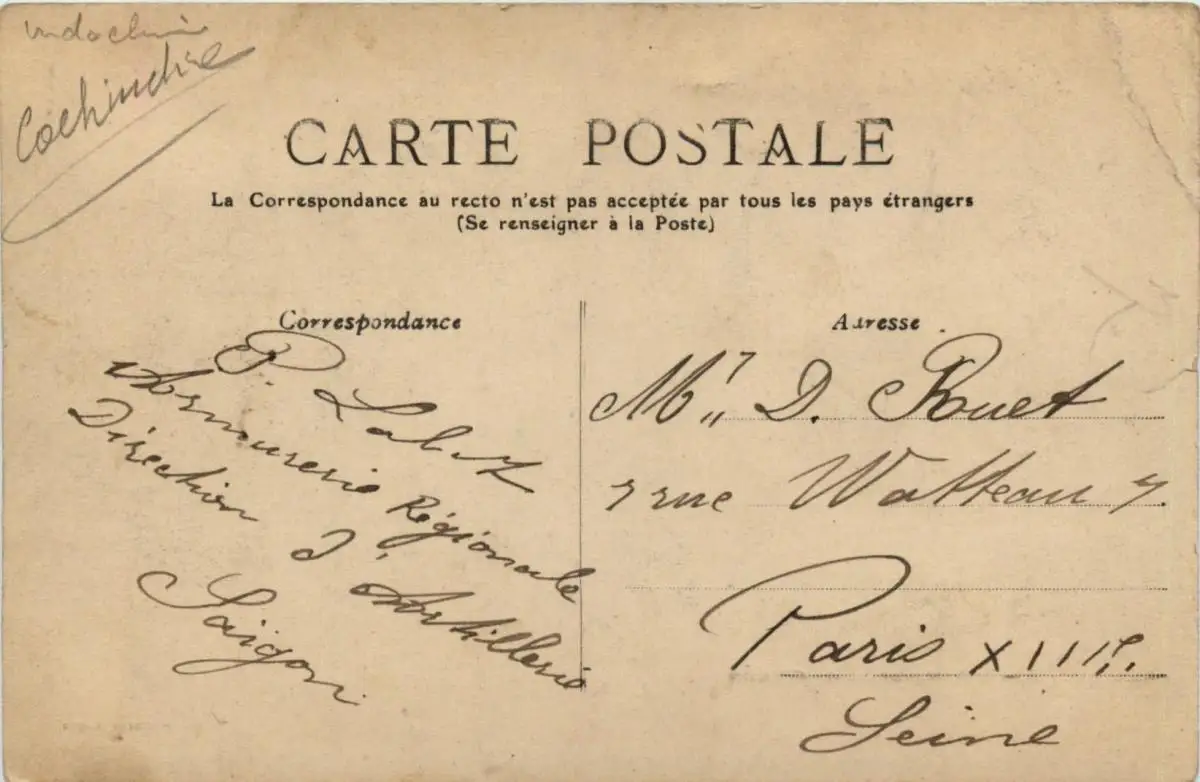 Indochine
Cochinchine
CARTE POSTALE
La Correspondance au recto n'est pas acceptée par tous les pays étrangers
(Se renseigner à la Poste)
Correspondance
P.
Armurerie Régionale
Direction d'Artillerie
Saigon
Adresse
Mr,, D. Rouet
7 rue Watteau 7.
Paris XIIIe.
Seine